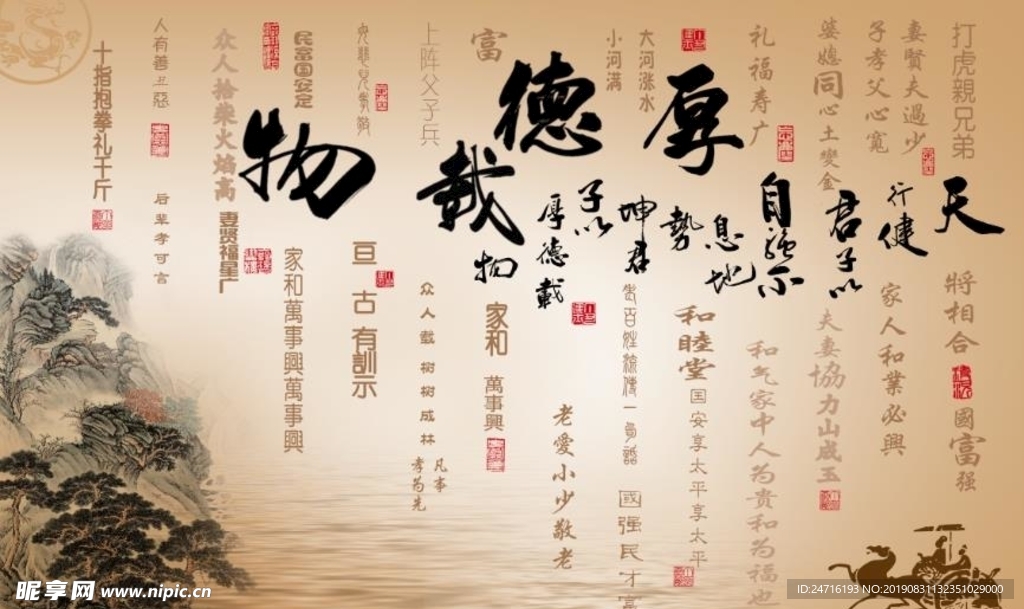 打虎親兄弟
將相合
國富强
天
妻賢夫過少
行健
子孝父心寬
家人和業必興
婆媳同心土變金
君子以
夫妻協力山成玉
自强不
礼福寿广
和气家中人为贵和为福也
厚
息地
勢
和睦堂
国安享太平享太平
大河涨水
小河满
坤君
國强民才富
子以
厚德載
物
老愛小少敬老
德
富
載
家和
萬事興
上阵父子兵
众人栽树树成林
凡事
孝为先
亘古有訓示
民富国安定
物
家和萬事興萬事興
众人拾柴火焰高
妻贤福星广
人有善
后辈孝可言
十指抱拳礼千斤
昵享网 www.nipic.cn
ID:24716193 NO:20190831132351029000